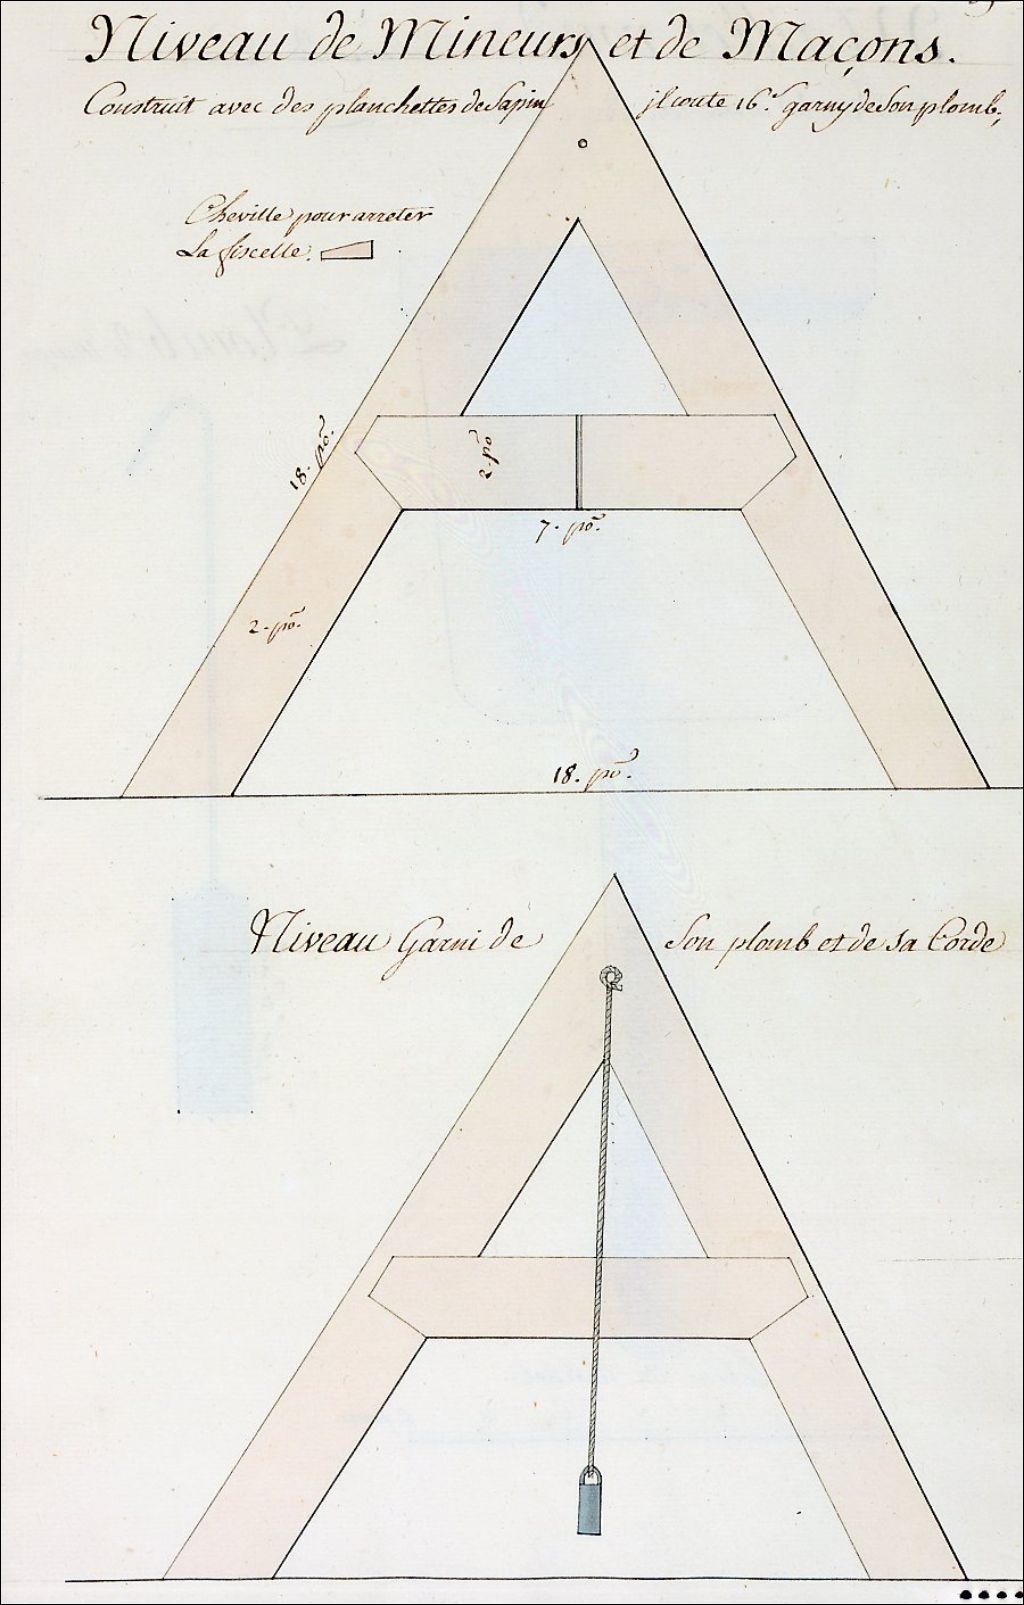 Niveau de Mineurs et de Maçons.
Construit avec des planchettes de Sapin jl coute 16.s garny de Son plomb,
Cheville pour arreter
La fiscelle.
18. po.
2. po
7. po.
2. po.
18. po.
Niveau Garni de Son plomb et de sa Corde